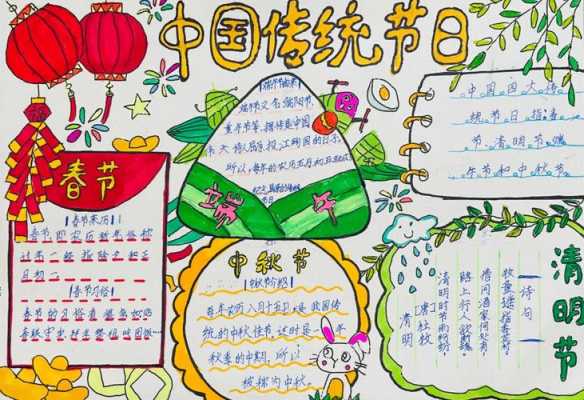 中国传统节日
春节
【春节来历】
春节即农历新年俗称
【春节习俗】
【端午节由来】
端午节又名端阳节,
重午节等,据传是中国
伟大诗人屈原投江殉国的日子。
所以,每年的农历五月初五
端午
中国四大传
统节日指:春
节、清明节、端
午节和中秋节。
中秋节
每年农历八月十五日,是我国传
统的中秋佳节。这时是一年
秋季的中期,所以
被称为中秋。
清明节
诗句
清明
【唐】杜牧
清明时节雨纷纷
路上行人欲断魂
借问酒家何处有
牧童遥指杏花村